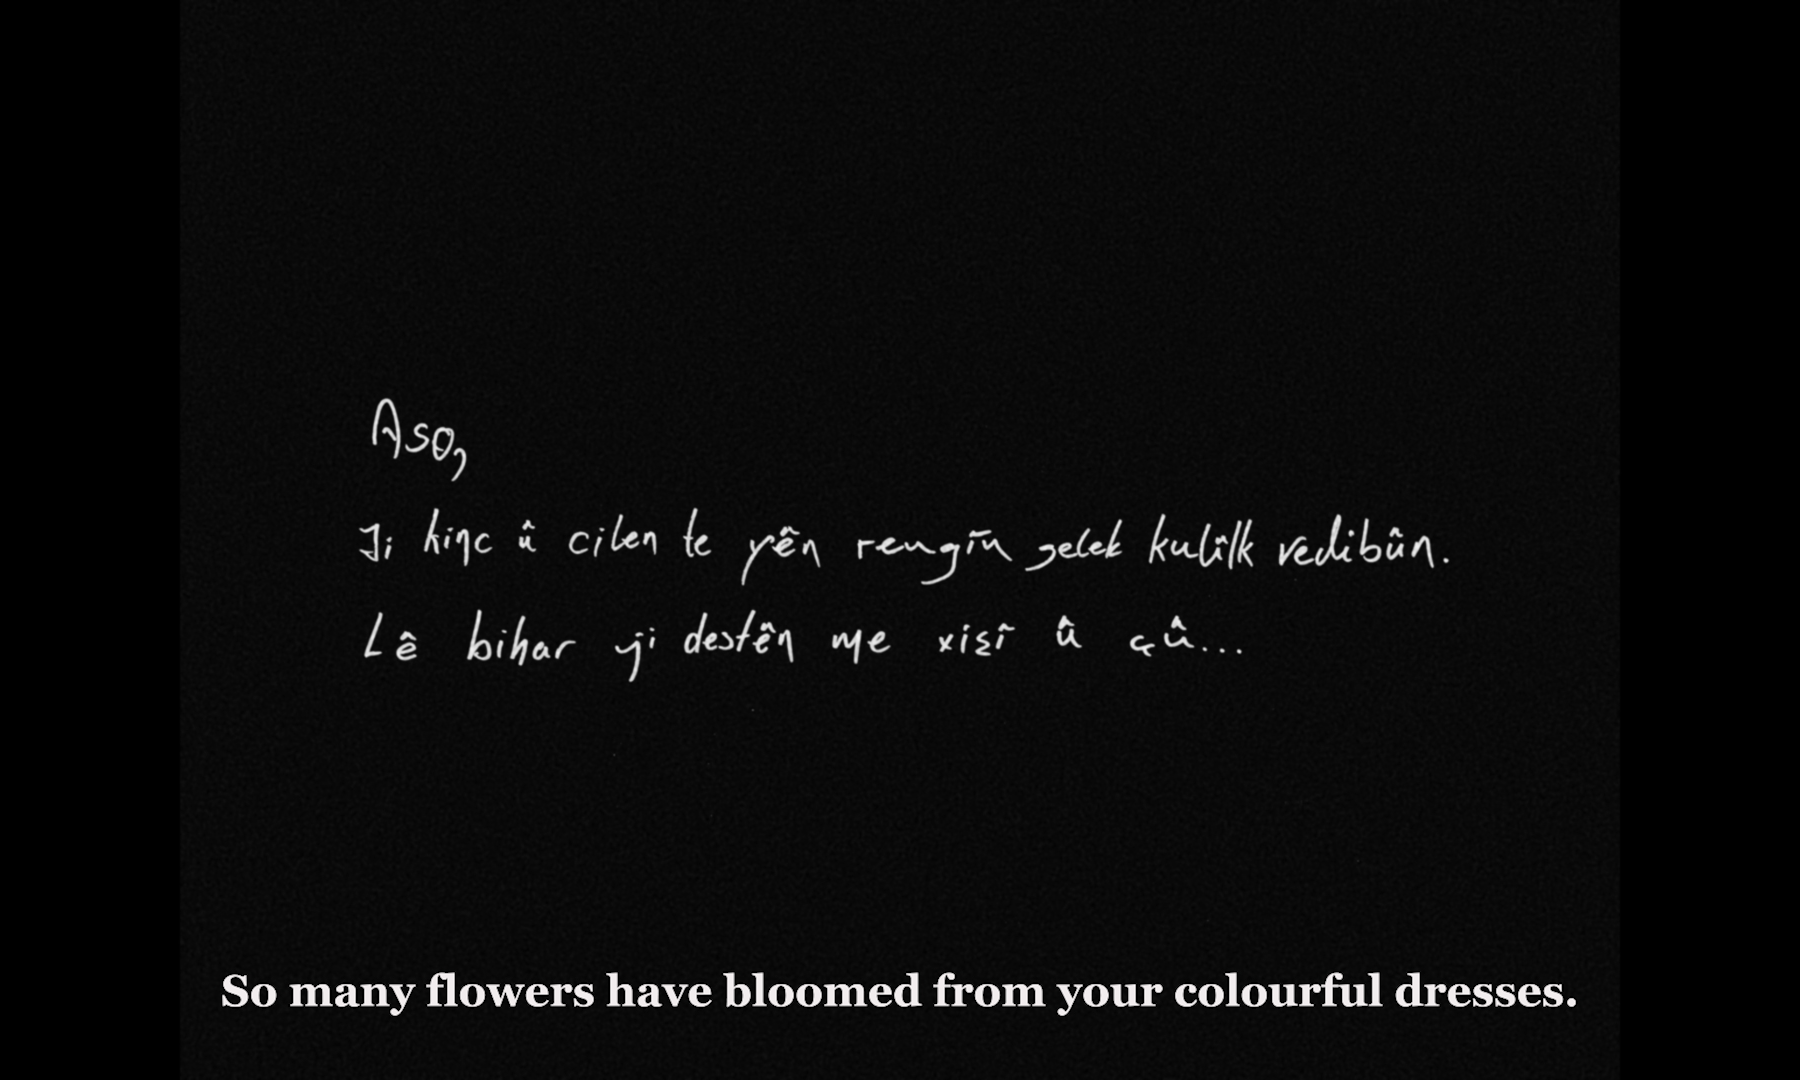 Aso,
Ji kinc û cilen te yên rengîn gelek kulîlk vedibûn.
Lê bihar ji destên me xişî û çû...
So many flowers have bloomed from your colourful dresses.